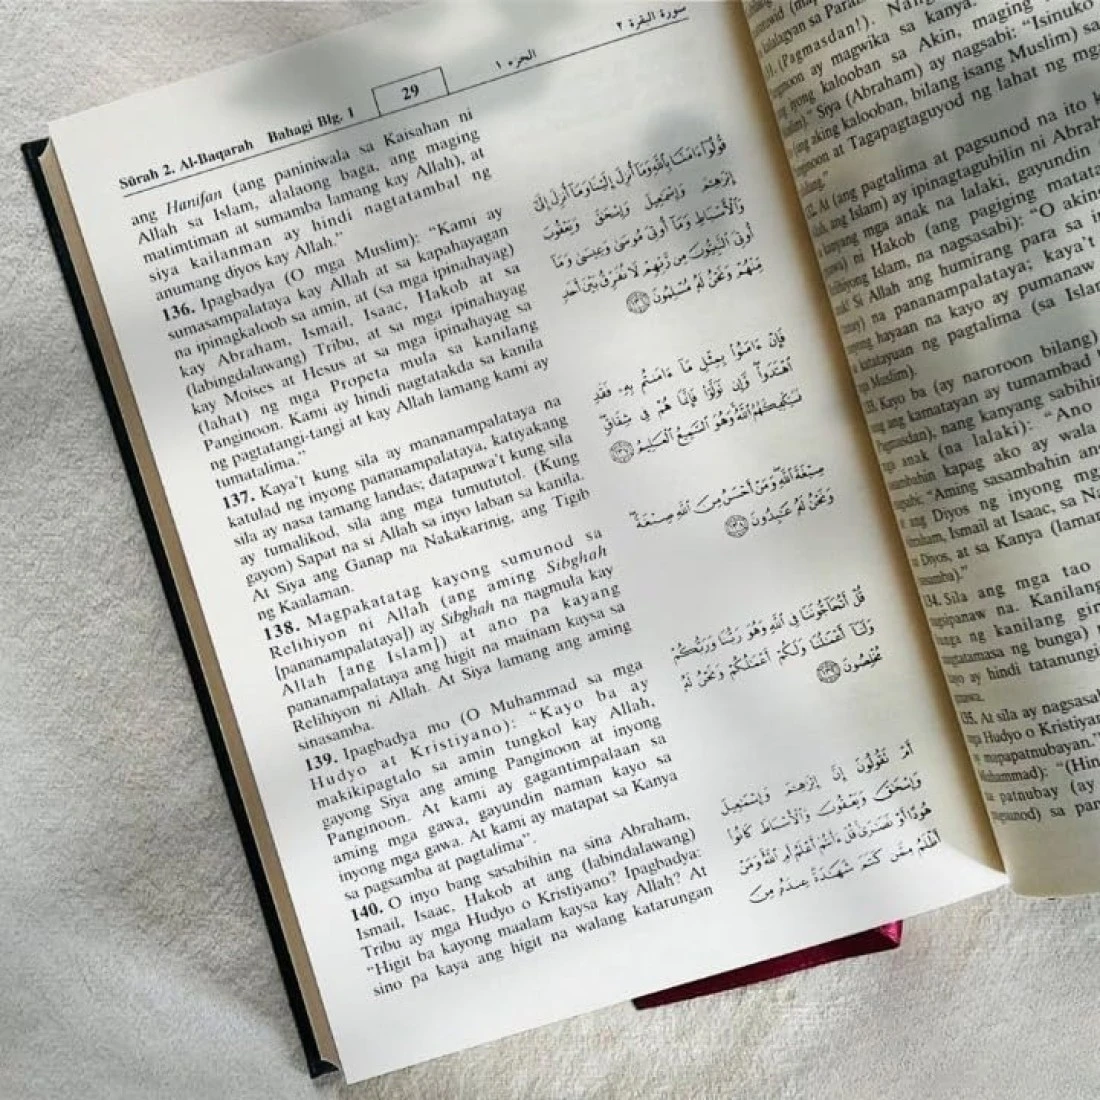 Sûrah 2. Al-Baqarah Bahagi Blg. 1
29
الجزء ١
سورة البقرة ٢
ang Hanifan (ang paniniwala sa Kaisahan ni
Allah sa Islam, alalaong baga, ang maging
matimtiman at sumamba lamang kay Allah), at
siya kailanman ay hindi nagtatambal ng
anumang diyos kay Allah.”
136. Ipagbadya (O mga Muslim): “Kami ay
sumasampalataya kay Allah at sa kapahayagan
na ipinagkaloob sa amin, at (sa mga ipinahayag)
kay Abraham, Ismail, Isaac, Hakob at sa
(labingdalawang) Tribu, at sa mga ipinahayag
kay Moises at Hesus at sa mga ipinahayag sa
(lahat) ng mga Propeta mula sa kanilang
Panginoon. Kami ay hindi nagtatakda sa kanila
ng pagtatangi-tangi at kay Allah lamang kami ay
tumatalima.”
137. Kaya’t kung sila ay mananampalataya na
katulad ng inyong pananampalataya, katiyakang
sila ay nasa tamang landas; datapuwa’t kung sila
ay tumalikod, sila ang mga tumututol. (Kung
gayon) Sapat na si Allah sa inyo laban sa kanila.
At Siya ang Ganap na Nakakarinig, ang Tigib
ng Kaalaman.
138. Magpakatatag kayong sumunod sa
Relihiyon ni Allah (ang aming Sibghah
[pananampalataya]) ay Sibghah na nagmula kay
Allah [ang Islam]) at ano pa kayang
pananampalataya ang higit na mainam kaysa sa
Relihiyon ni Allah. At Siya lamang ang aming
sinasamba.
139. Ipagbadya mo (O Muhammad sa mga
Hudyo at Kristiyano): “Kayo ba ay
makikipagtalo sa amin tungkol kay Allah,
gayong Siya ang aming Panginoon at inyong
Panginoon. At kami ay gagantimpalaan sa
aming mga gawa, gayundin naman kayo sa
inyong mga gawa. At kami ay matapat sa Kanya
sa pagsamba at pagtalima”.
140. O inyo bang sasabihin na sina Abraham,
Ismail, Isaac, Hakob at ang (labindalawang)
Tribu ay mga Hudyo o Kristiyano? Ipagbadya:
“Higit ba kayong maalam kaysa kay Allah? At
sino pa kaya ang higit na walang katarungan
قُولُوٓا۟ ءَامَنَّا بِٱللَّهِ وَمَآ أُنزِلَ إِلَيْنَا وَمَآ أُنزِلَ إِلَىٰٓ
إِبْرَٰهِـۧمَ وَإِسْمَـٰعِيلَ وَإِسْحَـٰقَ وَيَعْقُوبَ
وَٱلْأَسْبَاطِ وَمَآ أُوتِىَ مُوسَىٰ وَعِيسَىٰ وَمَآ
أُوتِىَ ٱلنَّبِيُّونَ مِن رَّبِّهِمْ لَا نُفَرِّقُ بَيْنَ أَحَدٍ
مِّنْهُمْ وَنَحْنُ لَهُۥ مُسْلِمُونَ ١٣٦
فَإِنْ ءَامَنُوا۟ بِمِثْلِ مَآ ءَامَنتُم بِهِۦ فَقَدِ
ٱهْتَدَوا۟ وَّإِن تَوَلَّوْا۟ فَإِنَّمَا هُمْ فِى شِقَاقٍ
فَسَيَكْفِيكَهُمُ ٱللَّهُ وَهُوَ ٱلسَّمِيعُ ٱلْعَلِيمُ ١٣٧
صِبْغَةَ ٱللَّهِ وَمَنْ أَحْسَنُ مِنَ ٱللَّهِ صِبْغَةً
وَنَحْنُ لَهُۥ عَـٰبِدُونَ ١٣٨
قُلْ أَتُحَآجُّونَنَا فِى ٱللَّهِ وَهُوَ رَبُّنَا وَرَبُّكُمْ
وَلَنَآ أَعْمَـٰلُنَا وَلَكُمْ أَعْمَـٰلُكُمْ وَنَحْنُ لَهُۥ
مُخْلِصُونَ ١٣٩
أَمْ تَقُولُونَ إِنَّ إِبْرَٰهِـۧمَ وَإِسْمَـٰعِيلَ
وَإِسْحَـٰقَ وَيَعْقُوبَ وَٱلْأَسْبَاطَ كَانُوا۟
هُودًا أَوْ نَصَـٰرَىٰ قُلْ ءَأَنتُمْ أَعْلَمُ أَمِ ٱللَّهُ وَمَنْ
أَظْلَمُ مِمَّن كَتَمَ شَهَـٰدَةً عِندَهُۥ مِنَ
sa Para
(Pagmasdan!).
ay magwika sa kanya: “Isinuko
iyong kalooban sa Akin, maging
Siya (Abraham) ay nagsabi:
(ang aking kalooban, bilang isang Muslim) sa
at Tagapagtaguyod ng lahat ng mga
At (ang pagtalima at pagsunod na ito
ang Islam) ay ipinagtagubilin ni
mga anak na lalaki, gayundin
ni Hakob (ang pagiging
Islam, na nagsasabi): “O aking
Si Allah ang humirang para sa
na pananampalataya; kaya’t
hayaan na kayo ay pumanaw
ng pagtalima (sa
Muslim).
Kayo ba (ay naroroon bilang)
ang kamatayan ay tumambad
nang kanyang
anak (na lalaki): “Ano
kapag ako ay wala
“Aming sasambahin ang
ang Diyos ng inyong mga
Ismail at Isaac, sa
Diyos, at sa Kanya
134. Sila ang mga tao
na. Kanilang
ng kanilang
ng bunga)
ay hindi
At sila ay
Hudyo o
mapapatnubayan.”
“(Hin
patnubay (ay
sa pan